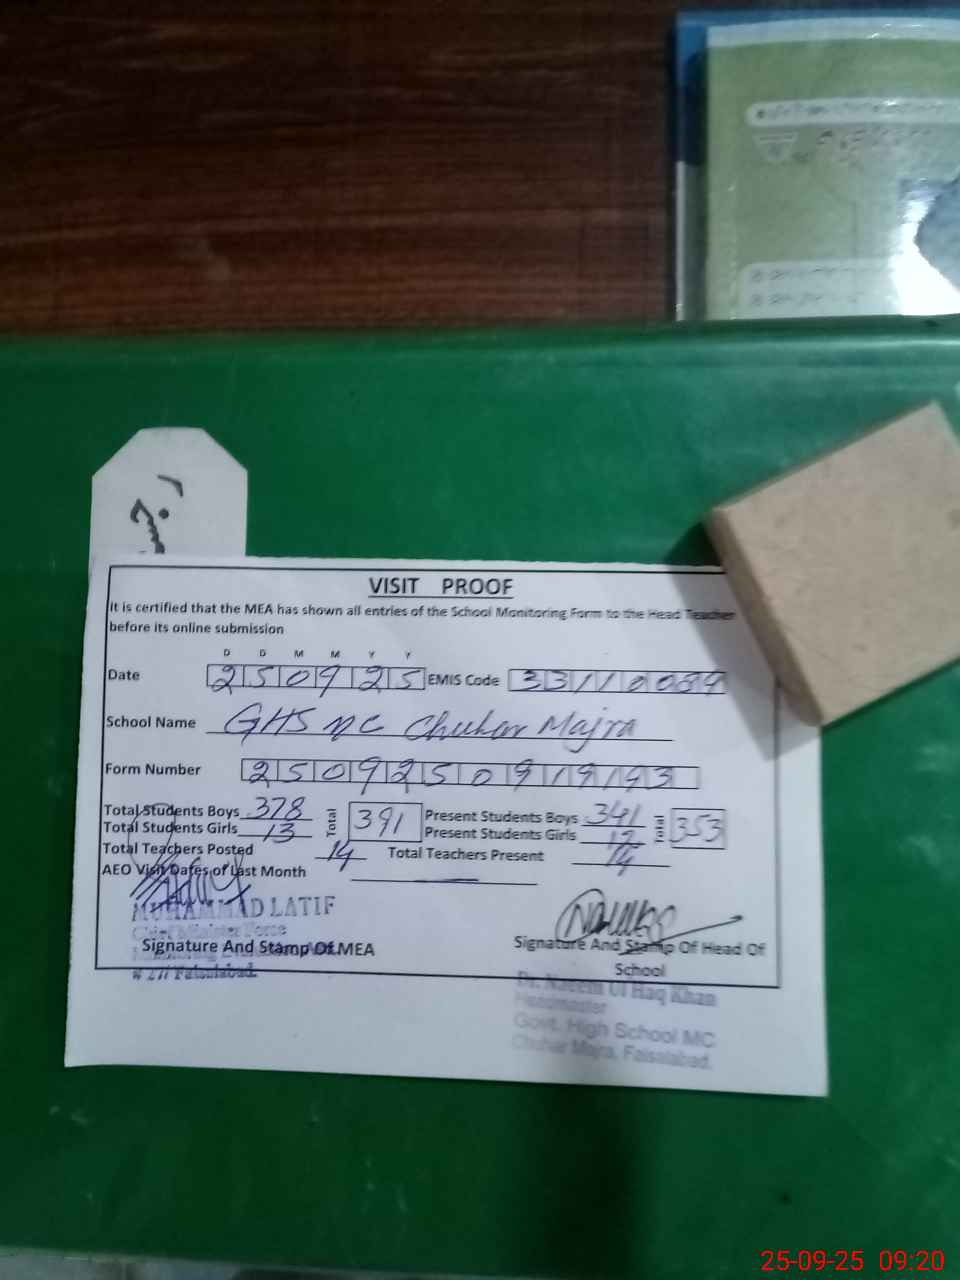 VISIT PROOF
It is certified that the MEA has shown all entries of the School Monitoring Form to the Head Teacher
before its online submission
D D M M Y Y
Date 250925 EMIS Code 33110089
School Name GHS MC Chuhar Majra
Form Number 2509250919193
Total Students Boys 378 Total 391 Present Students Boys 341 Total 353
Total Students Girls 13 Present Students Girls 12
Total Teachers Posted 14 Total Teachers Present 14
AEO Visit Dates of Last Month
MUHAMMAD LATIF
Chief Minister Force
Signature And Stamp Of MEA
Signature And Stamp Of Head Of
School
Faisalabad.
Dr. Naeem Ul Haq Khan
Headmaster
Govt. High School MC
Chuhar Majra, Faisalabad.
25-09-25 09:20